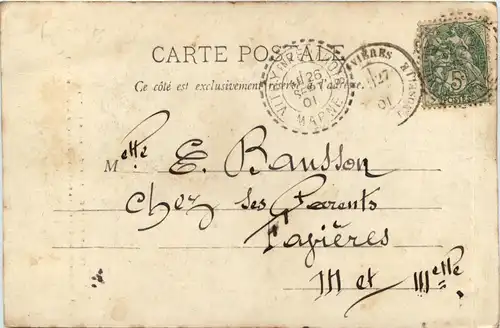 CARTE POSTALE
Ce côté est exclusivement réservé à l'adresse.
26
SEPT
01
MARNE
27
01
5c
Melle E. Bausson
Chez ses Parents
Favières
M et Melle